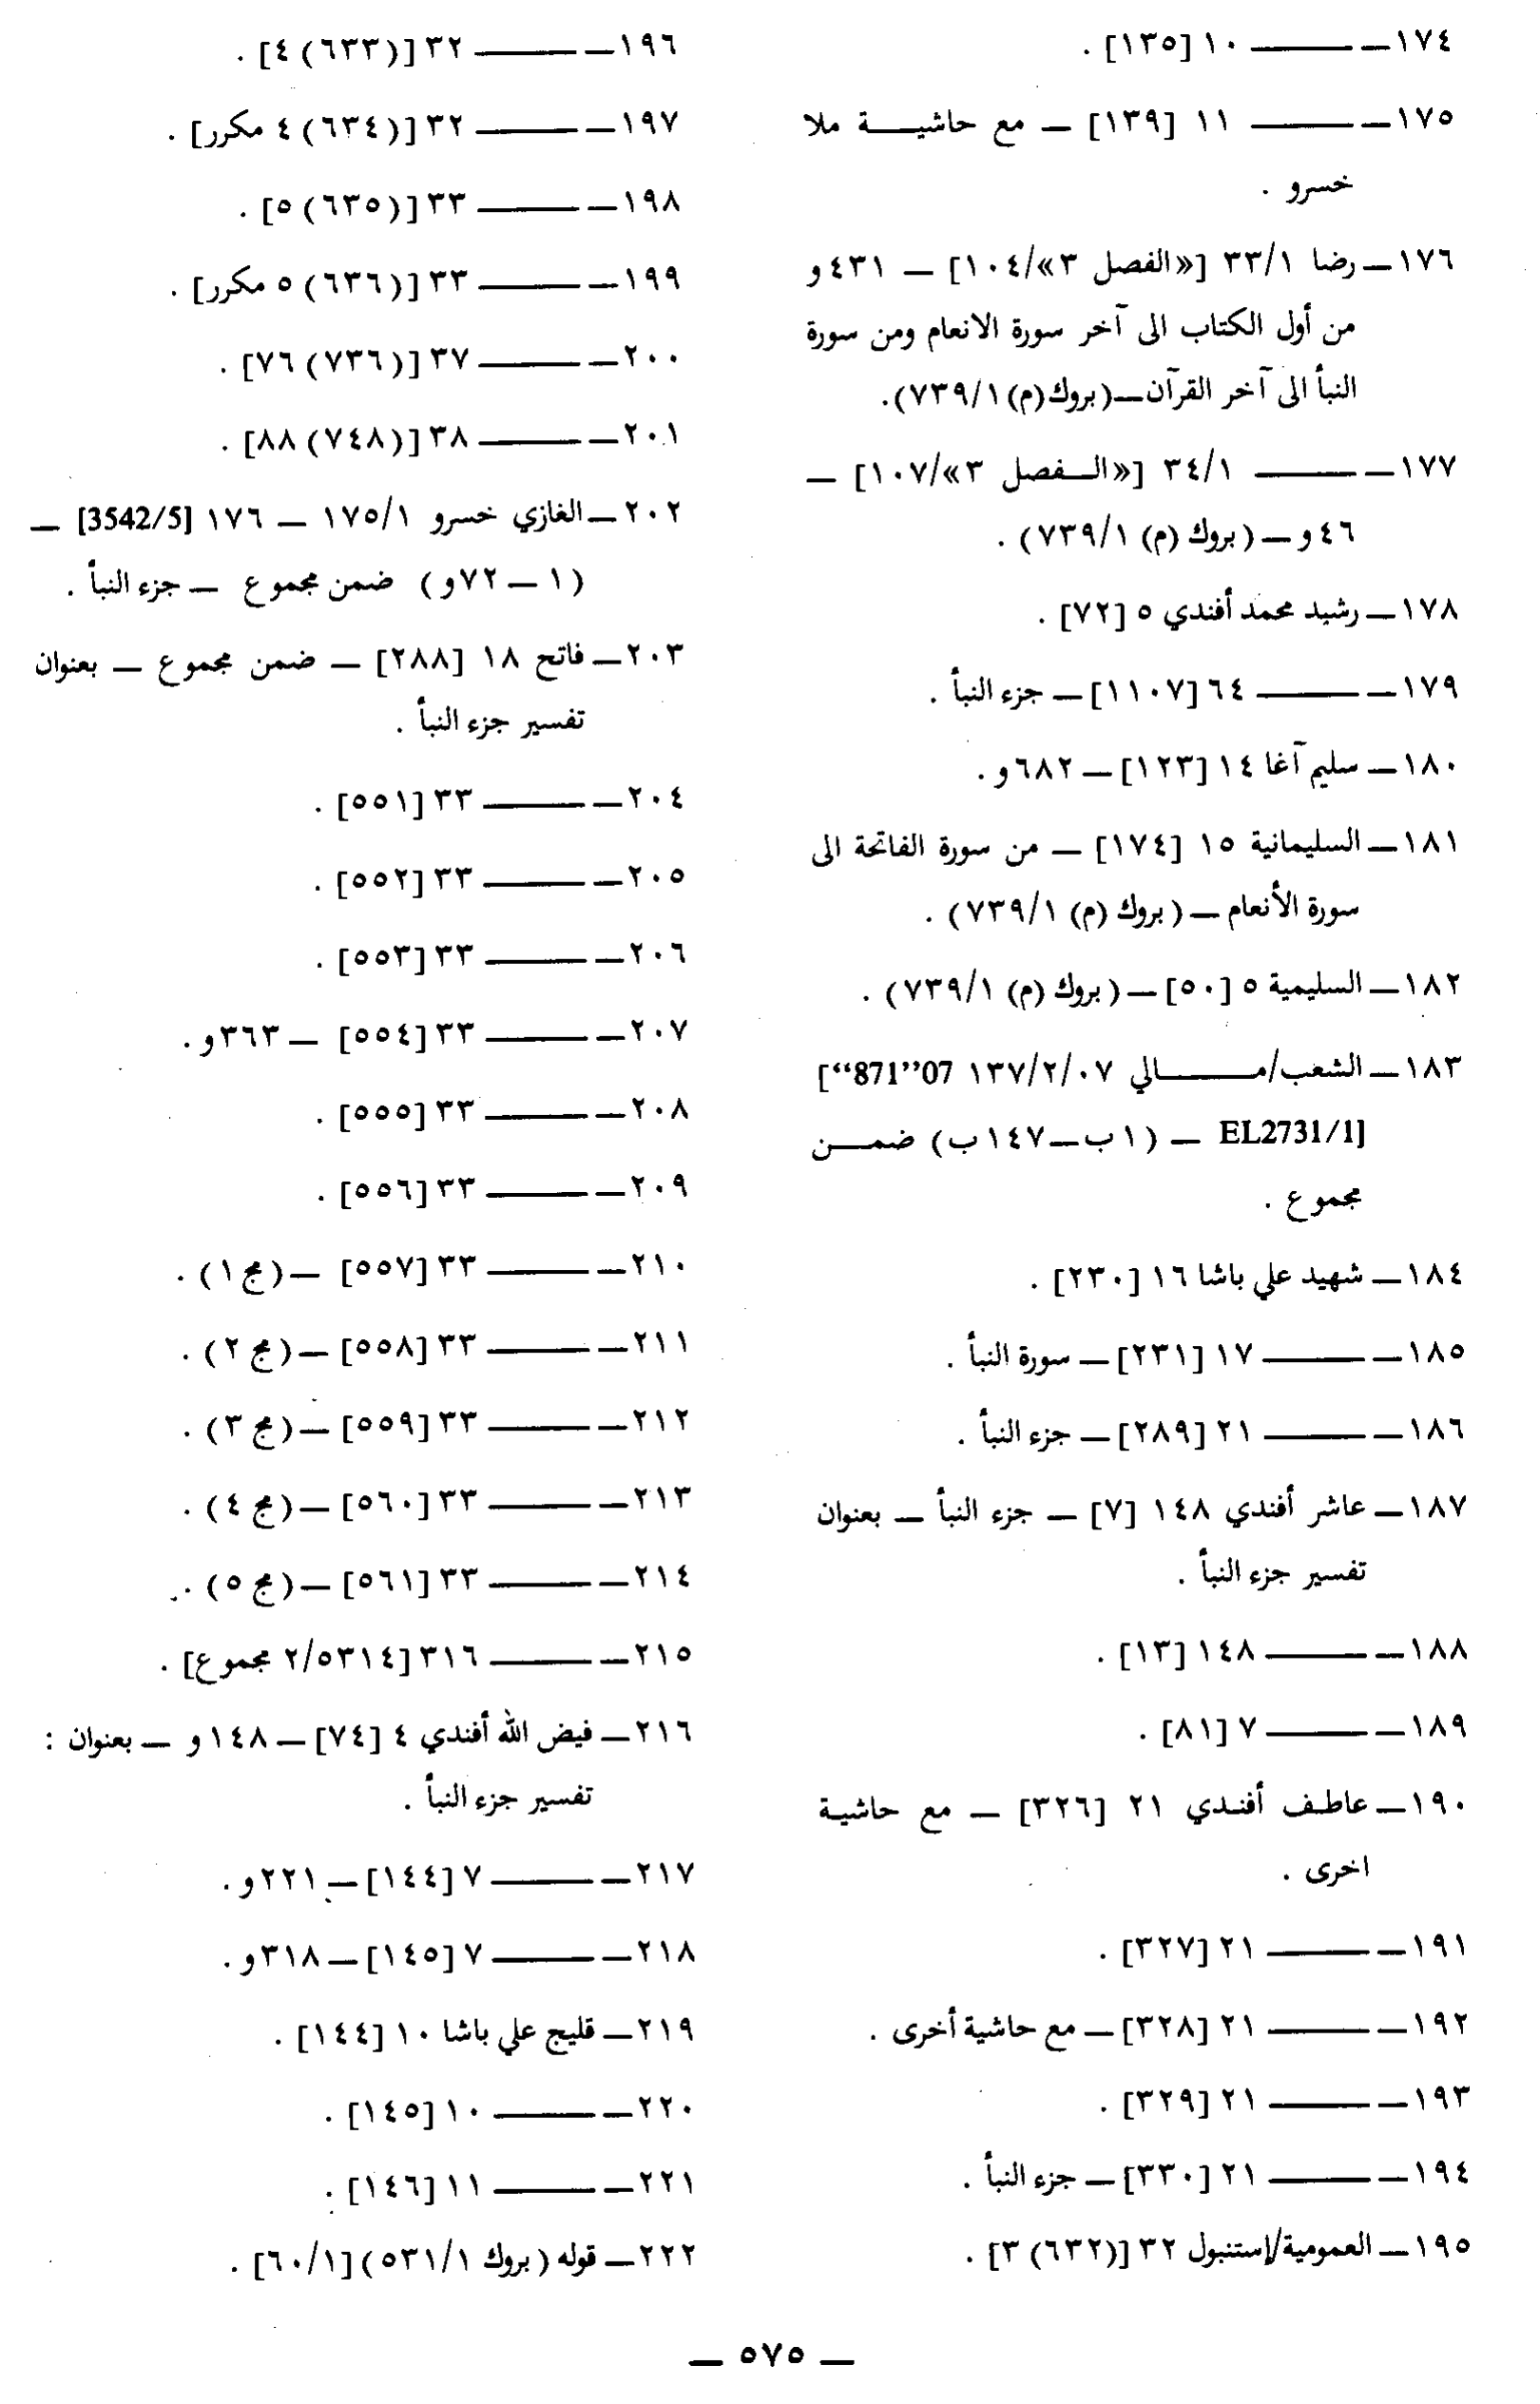 ١٧٤ــ ــــــــ ١٠ [١٣٥] .
١٧٥ــ ــــــــ ١١ [١٣٩] ــ مع حاشيــــة ملا
خسرو .
١٧٦ــ رضا ٣٣/١ [«الفصل ٣»/١٠٤] ــ ٤٣١و
من أول الكتاب الى آخر سورة الانعام ومن سورة
النبأ الى آخر القرآن ــ (بروك(م) ٧٣٩/١).
١٧٧ــ ــــــــ ٣٤/١ [«الــفصل ٣»/١٠٧] ــ
٤٦و ــ (بروك (م) ٧٣٩/١) .
١٧٨ــ رشيد محمد أفندي ٥ [٧٢] .
١٧٩ــ ــــــــ ٦٤ [١١٠٧] ــ جزء النبأ .
١٨٠ــ سليم آغا ١٤ [١٢٣] ــ ٦٨٢و .
١٨١ــ السليمانية ١٥ [١٧٤] ــ من سورة الفاتحة الى
سورة الأنعام ــ (بروك (م) ٧٣٩/١) .
١٨٢ــ السليمية ٥ [٥٠] ــ (بروك (م) ٧٣٩/١) .
١٨٣ــ الشعب/مـــــالي ١٣٧/٢/٠٧ 07”871“]
EL2731/1] ــ (١ب ــ ١٤٧ب) ضمــــن
مجموع .
١٨٤ــ شهيد علي باشا ١٦ [٢٣٠] .
١٨٥ــ ــــــــ ١٧ [٢٣١] ــ سورة النبأ .
١٨٦ــ ــــــــ ٢١ [٢٨٩] ــ جزء النبأ .
١٨٧ــ عاشر أفندي ١٤٨ [٧] ــ جزء النبأ ــ بعنوان
تفسير جزء النبأ .
١٨٨ــ ــــــــ ١٤٨ [١٣] .
١٨٩ــ ــــــــ ٧ [٨١] .
١٩٠ــ عاطف أفندي ٢١ [٣٢٦] ــ مع حاشية
اخرى .
١٩١ــ ــــــــ ٢١ [٣٢٧] .
١٩٢ــ ــــــــ ٢١ [٣٢٨] ــ مع حاشية أخرى .
١٩٣ــ ــــــــ ٢١ [٣٢٩] .
١٩٤ــ ــــــــ ٢١ [٣٣٠] ــ جزء النبأ .
١٩٥ــ العمومية/إستنبول ٣٢ [(٦٣٢) ٣] .
١٩٦ــ ــــــــ ٣٢ [(٦٣٣) ٤] .
١٩٧ــ ــــــــ ٣٢ [(٦٣٤) ٤ مكرر] .
١٩٨ــ ــــــــ ٣٣ [(٦٣٥) ٥] .
١٩٩ــ ــــــــ ٣٣ [(٦٣٦) ٥ مكرر] .
٢٠٠ــ ــــــــ ٣٧ [(٧٣٦) ٧٦] .
٢٠١ــ ــــــــ ٣٨ [(٧٤٨) ٨٨] .
٢٠٢ــ الغازي خسرو ١٧٥/١ ــ ١٧٦ [3542/5] ــ
(١ ــ ٧٢و) ضمن مجموع ــ جزء النبأ .
٢٠٣ــ فاتح ١٨ [٢٨٨] ــ ضمن مجموع ــ بعنوان
تفسير جزء النبأ .
٢٠٤ــ ــــــــ ٣٣ [٥٥١] .
٢٠٥ــ ــــــــ ٣٣ [٥٥٢] .
٢٠٦ــ ــــــــ ٣٣ [٥٥٣] .
٢٠٧ــ ــــــــ ٣٣ [٥٥٤] ــ ٣٦٣و .
٢٠٨ــ ــــــــ ٣٣ [٥٥٥] .
٢٠٩ــ ــــــــ ٣٣ [٥٥٦] .
٢١٠ــ ــــــــ ٣٣ [٥٥٧] ــ (مج ١) .
٢١١ــ ــــــــ ٣٣ [٥٥٨] ــ (مج ٢) .
٢١٢ــ ــــــــ ٣٣ [٥٥٩] ــ (مج ٣) .
٢١٣ــ ــــــــ ٣٣ [٥٦٠] ــ (مج ٤) .
٢١٤ــ ــــــــ ٣٣ [٥٦١] ــ (مج ٥) .
٢١٥ــ ــــــــ ٣١٦ [٢/٥٣١٤ مجموع] .
٢١٦ــ فيض الله أفندي ٤ [٧٤] ــ ١٤٨و ــ بعنوان :
تفسير جزء النبأ .
٢١٧ــ ــــــــ ٧ [١٤٤] ــ ٢٢١و .
٢١٨ــ ــــــــ ٧ [١٤٥] ــ ٣١٨و .
٢١٩ــ قليج علي باشا ١٠ [١٤٤] .
٢٢٠ــ ــــــــ ١٠ [١٤٥] .
٢٢١ــ ــــــــ ١١ [١٤٦] .
٢٢٢ــ قوله (بروك ٥٣١/١) [٦٠/١] .
ــ ٥٧٥ ــ